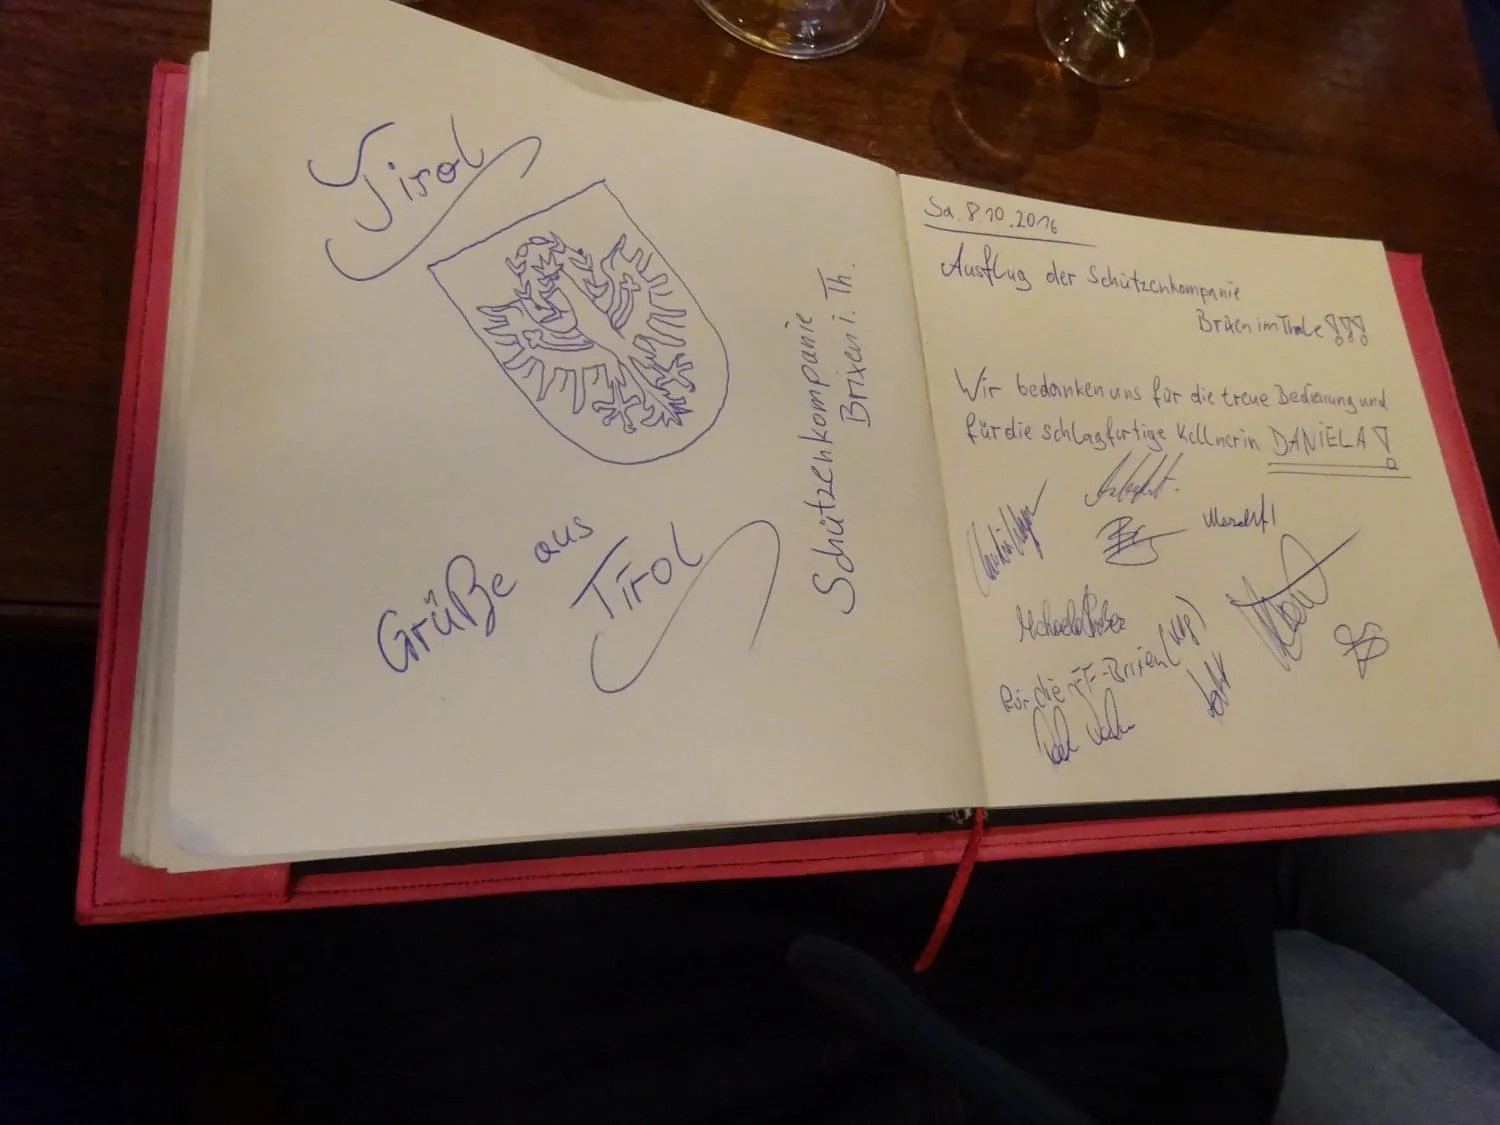 Tirol
Grüße aus
Tirol
Schützenkompanie
Brixen i. Th.
Sa. 8.10.2016
Ausflug der Schützenkompanie
Brixen im Thale!!!
Wir bedanken uns für die treue Bedienung und
für die schlagfertige Kellnerin DANIELA!
Michaela
Für die FF-Brixen